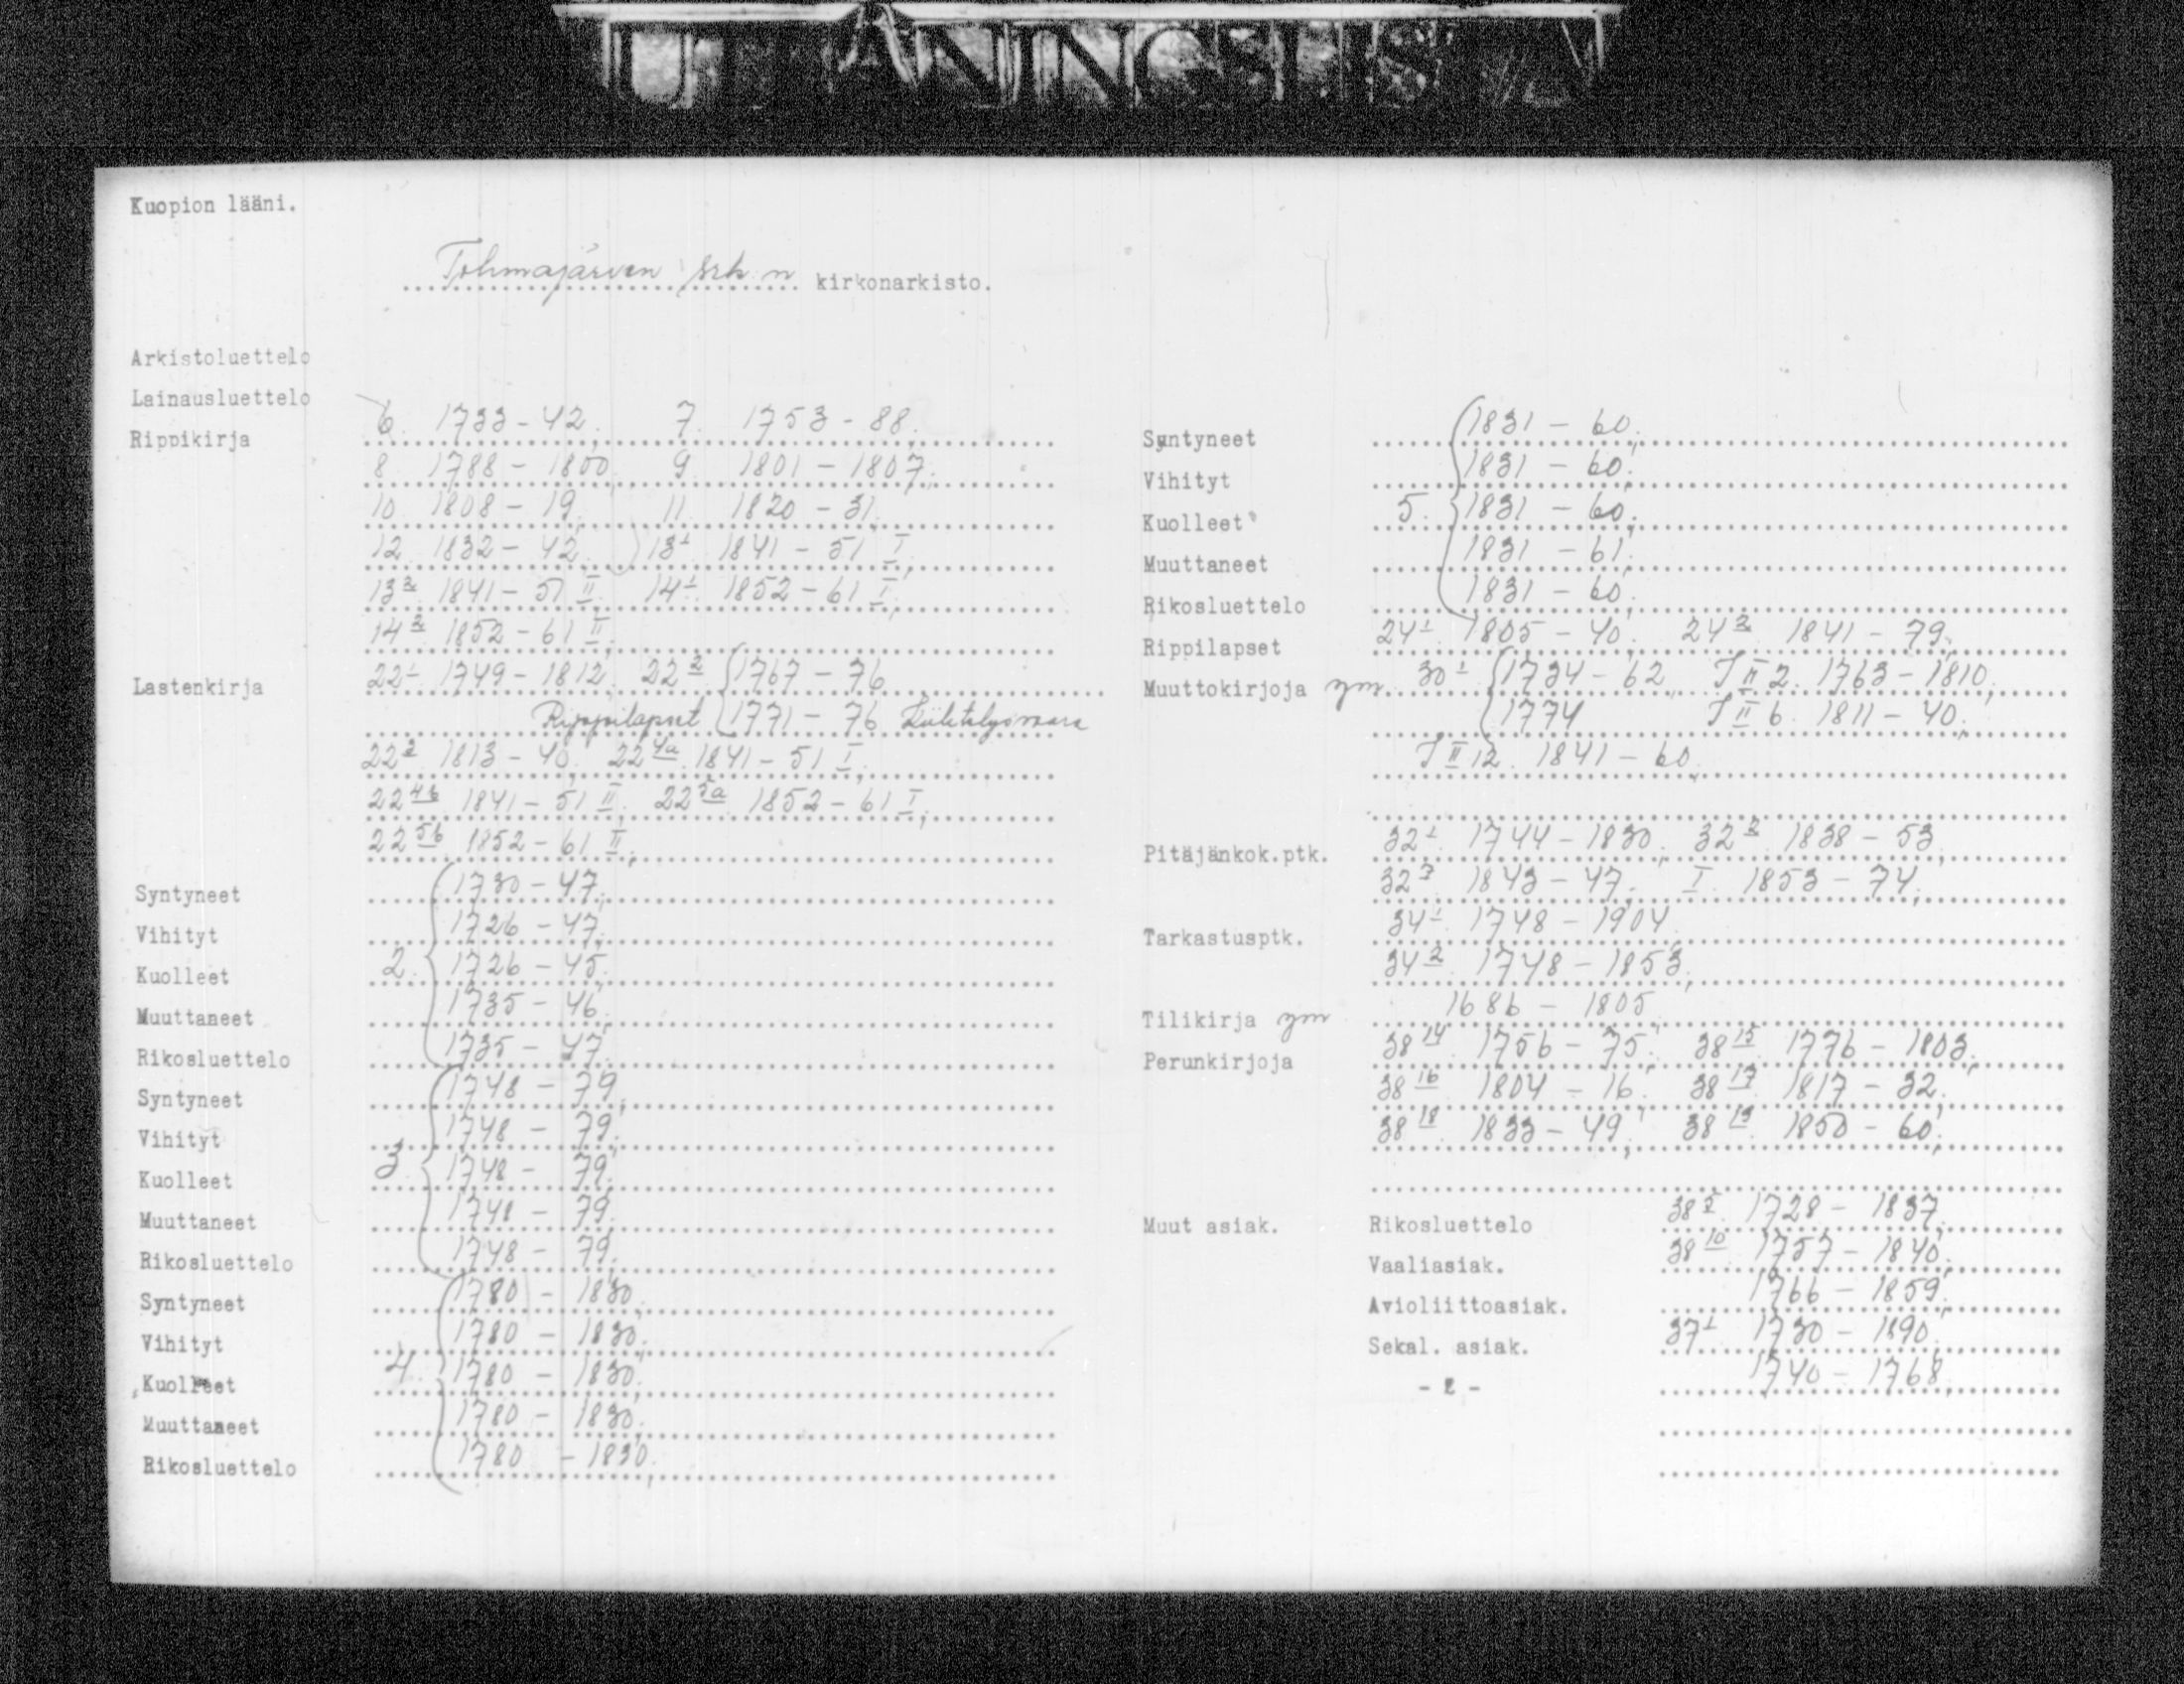 Kuopion lääni.
Tohmajärven srk:n kirkonarkisto.
Arkistoluettelo
Lainausluettelo
Rippikirja 6. 1733-42. 7. 1753-88.
8 1788-1800, 9 1801-1807.
10 1808-19, 11. 1820-31,
12 1832-42. 13¹ 1841-51 I,
13² 1841-51 II. 14¹ 1852-61 I,
14² 1852-61 II,
Lastenkirja 22¹ 1749-1812, 22² 1767-76
Rippilapset 1771-76
22³ 1813-40, 22⁴ᵃ 1841-51 I,
22⁴ᵇ 1841-51 II, 22⁵ᵃ 1852-61 I,
22⁵ᵇ 1852-61 II,
Syntyneet 1730-47,
Vihityt 1726-47,
Kuolleet 2. 1726-45.
Muuttaneet 1735-46.
Rikosluettelo 1735-47.
Syntyneet 1748-79,
Vihityt 1748-79,
Kuolleet 3. 1748-79,
Muuttaneet 1748-79.
Rikosluettelo 1748-79.
Syntyneet 1780-1830,
Vihityt 1780-1830.
Kuolleet 4. 1780-1830.
Muuttaneet 1780-1830.
Rikosluettelo 1780-1830.
Syntyneet 1831-60.
Vihityt 1831-60.
Kuolleet 5. 1831-60.
Muuttaneet 1831-61.
Rikosluettelo 1831-60.
Rippilapset 24¹ 1805-40, 24² 1841-79,
Muuttokirjoja ym. 30¹ 1734-62 I II 2. 1763-1810,
1774 I II 6. 1811-40.
I II 12. 1841-60.
Pitäjänkok.ptk. 32¹ 1744-1830, 32² 1838-53,
32³ 1843-47. I. 1853-74,
Tarkastusptk. 34¹ 1748-1904.
34² 1748-1853.
Tilikirja ym 1686-1805
Perunkirjoja 38¹⁴ 1756-75, 38¹⁵ 1776-1803,
38¹⁶ 1804-16. 38¹⁷ 1817-32,
38¹⁸ 1833-49, 38¹⁹ 1850-60,
Muut asiak. Rikosluettelo 1728-1837,
Vaaliasiak. 38¹⁰ 1757-1840.
Avioliittoasiak. 1766-1859.
Sekal. asiak. 37¹ 1730-1890.
1740-1768,